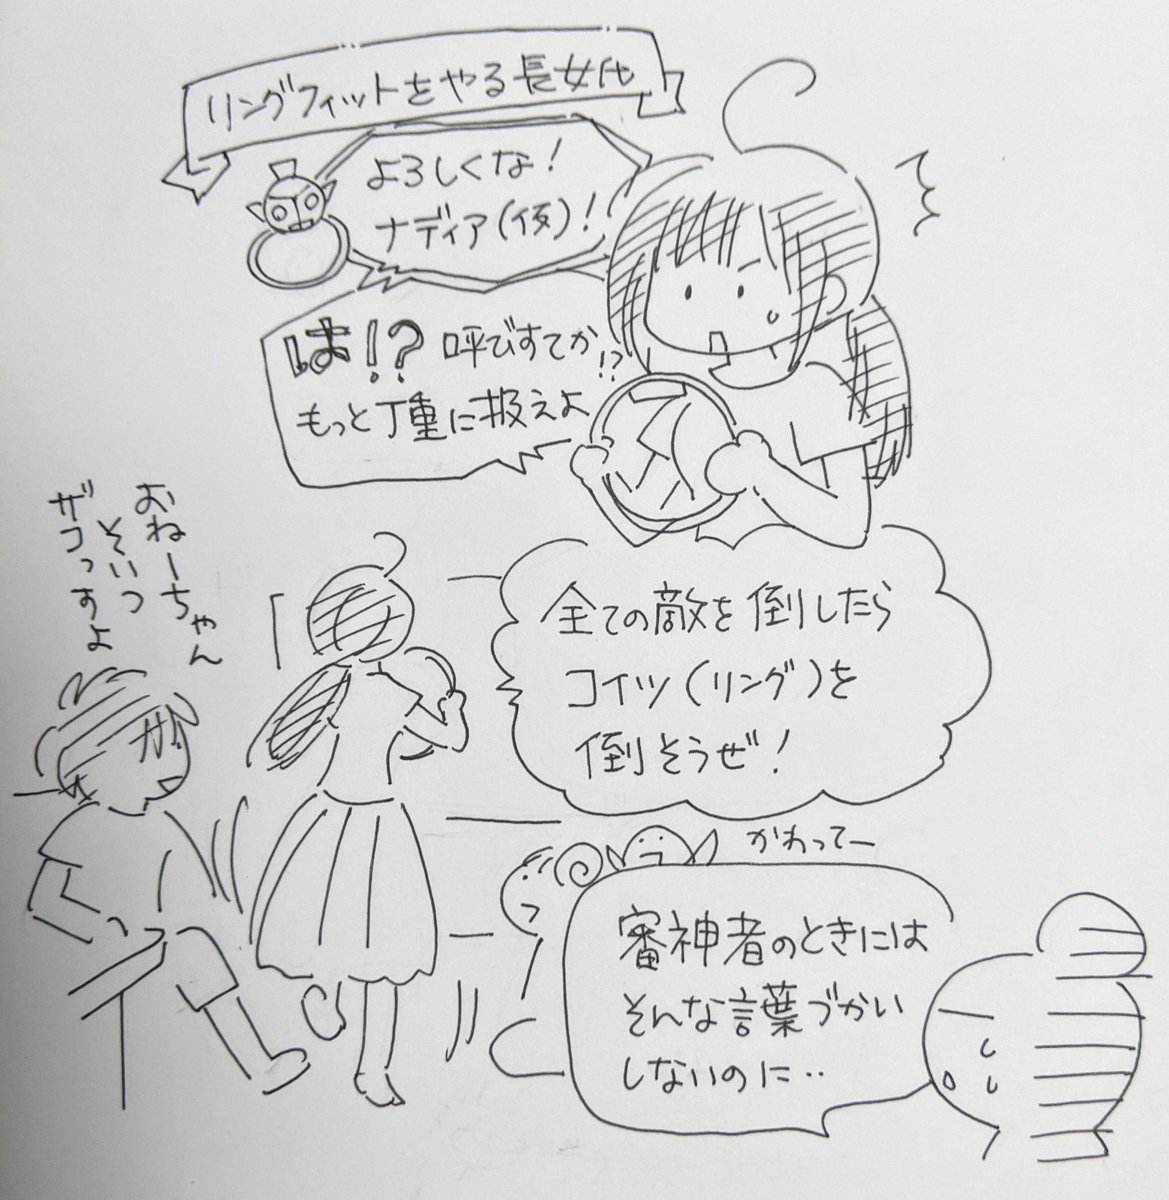 リングフィットをやる長女代
よろしくな!
ナディア(仮)!
は!?呼びすてか!?
もっと丁重に扱えよ
おねーちゃん
そいつ
ザコっすよ
全ての敵を倒したら
コイツ(リング)を
倒そうぜ!
かわってー
審神者のときには
そんな言葉づかい
しないのに‥